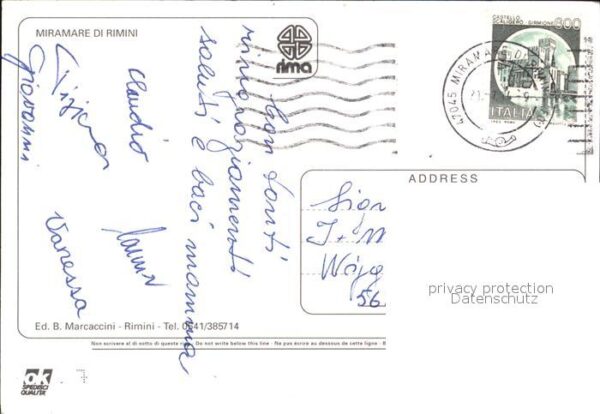 MIRAMARE DI RIMINI
rima
CASTELLO
SCALIGERO - SIRMIONE
800
ITALIA
47045 MIRAMA
Con tanti
ringraziamenti
saluti e baci mamma
Claudio
Tiziana
Giovanni
Vanessa
ADDRESS
Sign
56
privacy protection
Datenschutz
Ed. B. Marcaccini - Rimini - Tel. 0541/385714
Non scrivere al di sotto di questa riga - Do not write below this line - Ne pas écrire au dessous de cette ligne -
ok
SPEDISCI
QUALITÀ